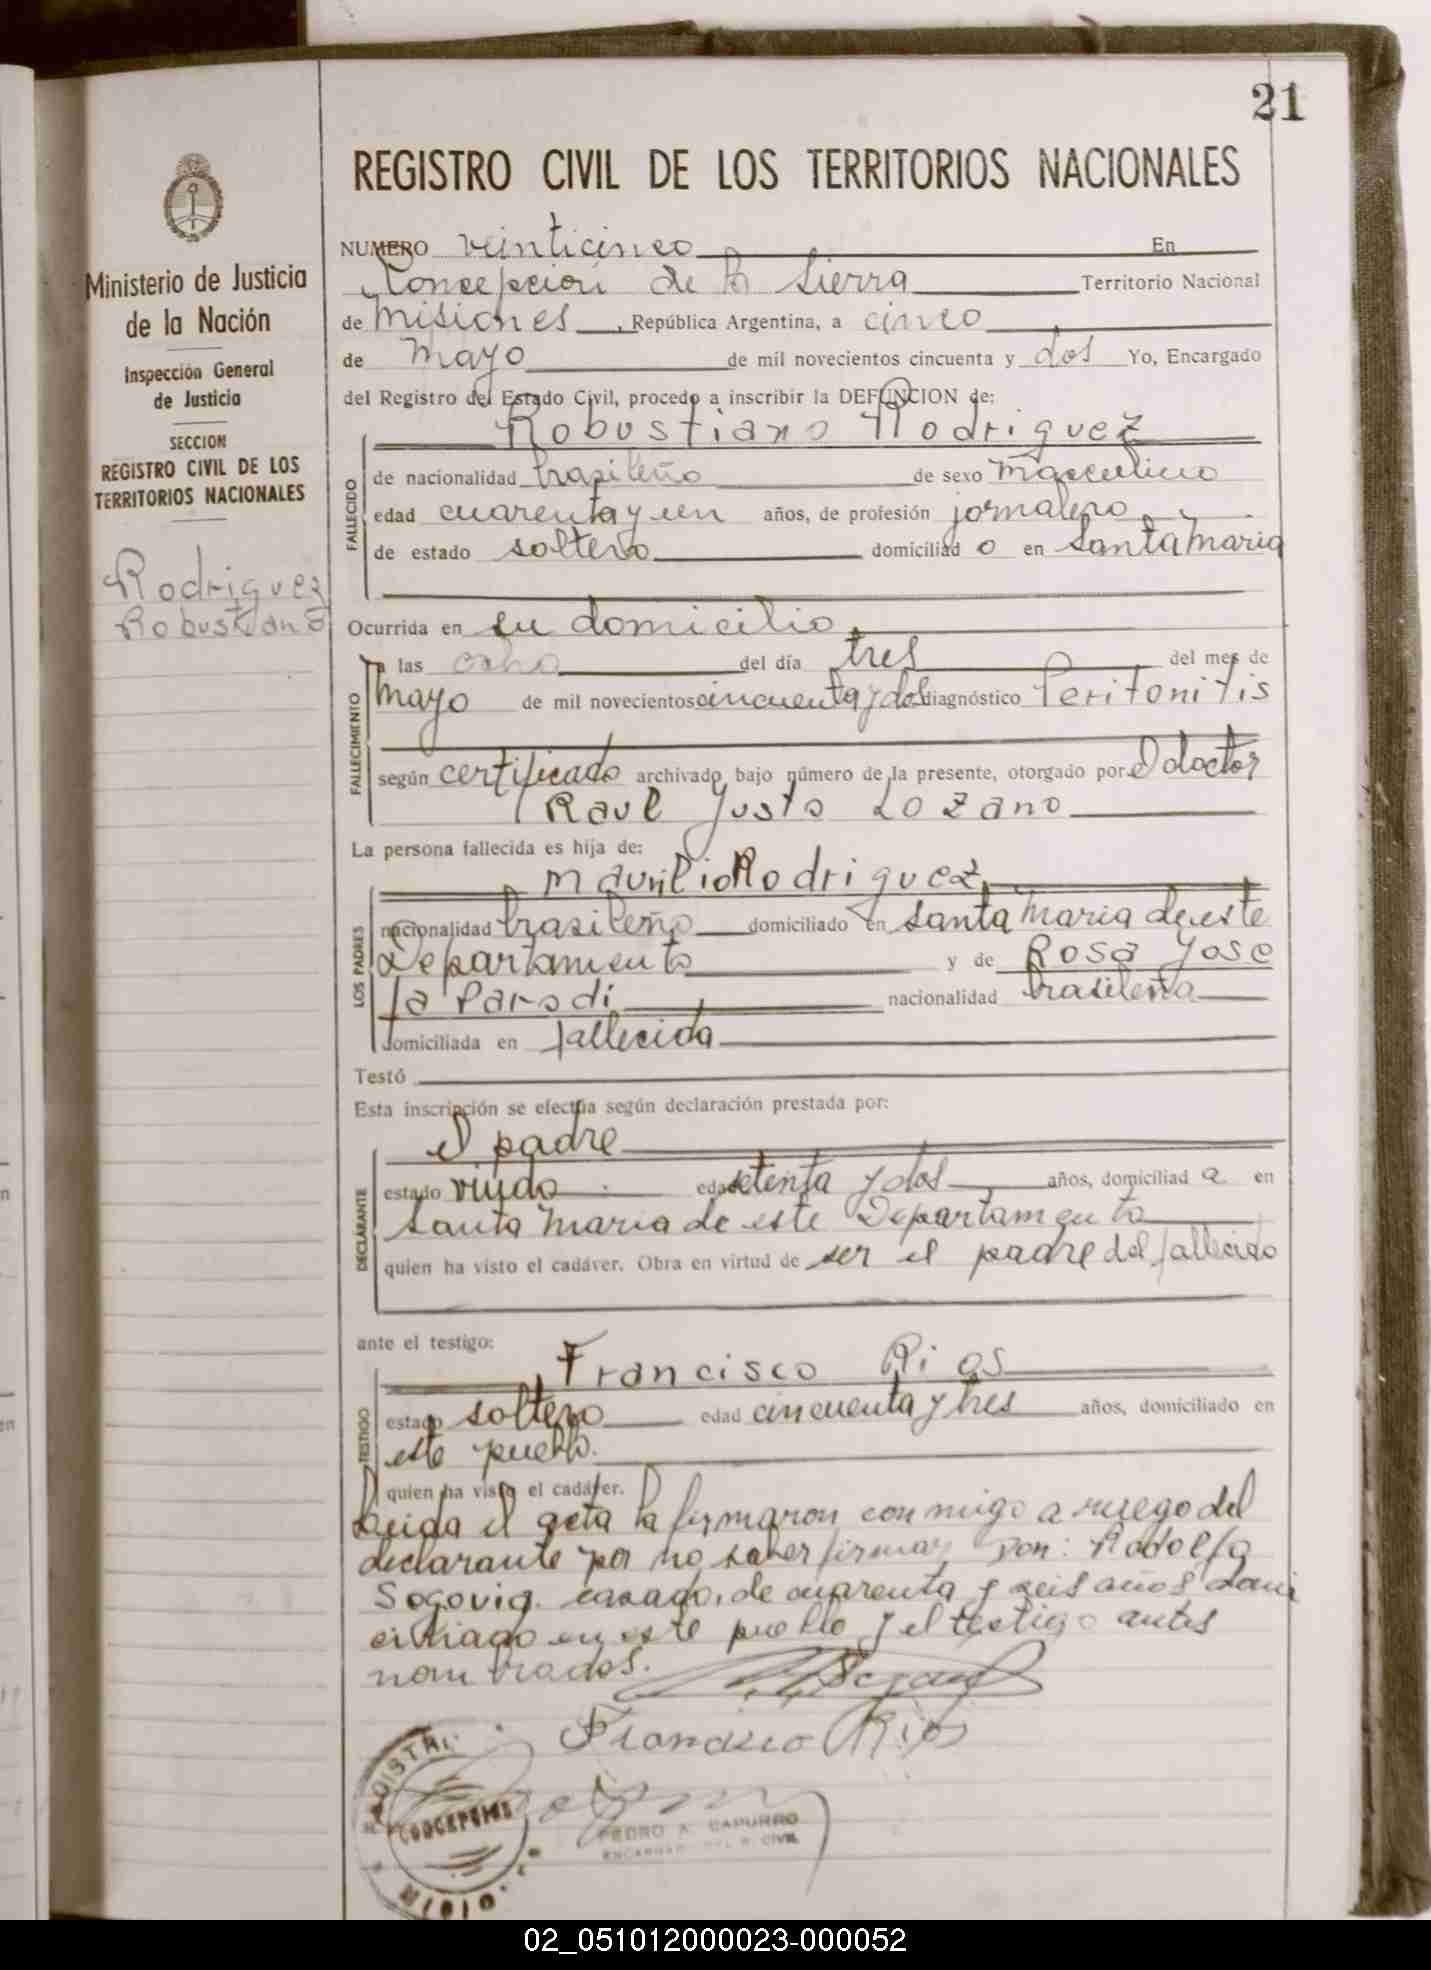 21
REGISTRO CIVIL DE LOS TERRITORIOS NACIONALES
Ministerio de Justicia
de la Nación
Inspección General
de Justicia
SECCION
REGISTRO CIVIL DE LOS
TERRITORIOS NACIONALES
Rodriguez
Robustiano
NUMERO veinticinco En
Concepción de la Sierra Territorio Nacional
de Misiones, República Argentina, a cinco
de Mayo de mil novecientos cincuenta y dos Yo, Encargado
del Registro del Estado Civil, procedo a inscribir la DEFUNCION de:
Robustiano Rodriguez
FALLECIDO
de nacionalidad brasileño de sexo Masculino
edad cuarenta y un años, de profesión jornalero
de estado soltero domiciliado en Santa Maria
Ocurrida en su domicilio
FALLECIMIENTO
a las ocho del día tres del mes de
Mayo de mil novecientos cincuenta y dos diagnóstico Peritonitis
según certificado archivado bajo número de la presente, otorgado por El doctor
Raul Justo Lozano
La persona fallecida es hija de:
LOS PADRES
Maurilio Rodriguez
nacionalidad brasileño domiciliado en Santa Maria de este
Departamento y de Rosa Jose
fa Parodi nacionalidad brasileña
domiciliada en fallecida
Testó
Esta inscripción se efectúa según declaración prestada por:
DECLARANTE
el padre
estado viudo edad setenta y dos años, domiciliad a en
Santa Maria de este Departamento
quien ha visto el cadáver. Obra en virtud de ser el padre del fallecido
ante el testigo:
TESTIGO
Francisco Rios
estado soltero edad cincuenta y tres años, domiciliado en
este pueblo.
quien ha visto el cadáver.
Leida el acta la firmaron conmigo a ruego del
declarante por no saber firmar Don: Rodolfo
Segovia casado, de cuarenta y seis años domi
ciliado en este pueblo y el testigo antes
nombrados.
Francisco Rios
CONCEPCION
PEDRO A. CAPURRO
ENCARGADO DEL R. CIVIL
02_051012000023-000052